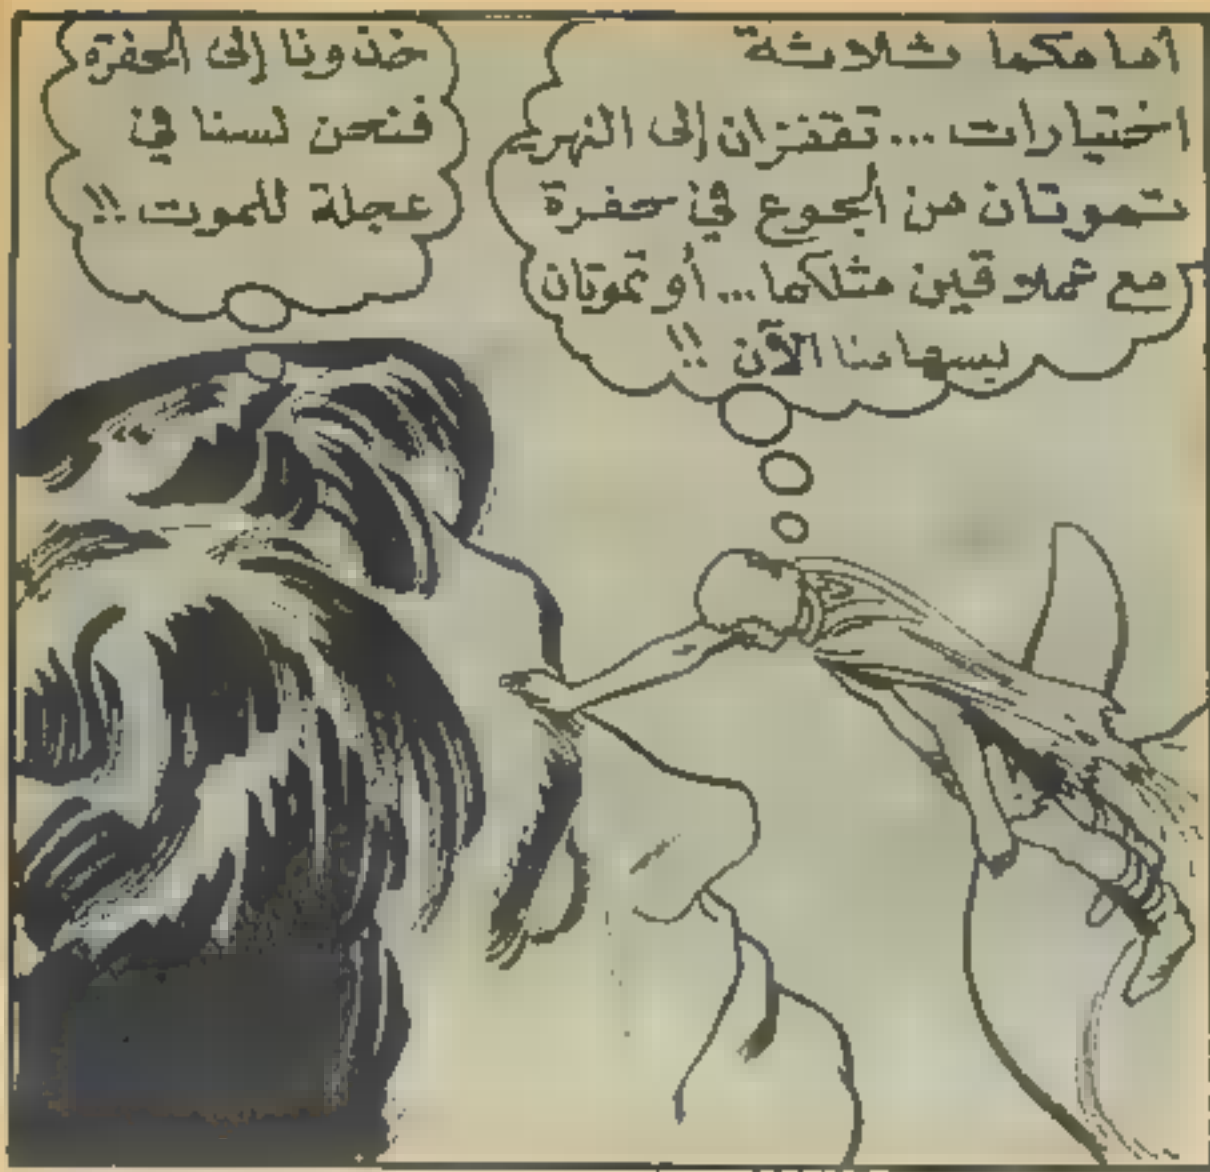 أمامكما ثلاثة
اختيارات... تقفزان إلى النهر
تموتان من الجوع في حفرة
مع عملاقين مثلكما... أو تموتان
بسهامنا الآن !!
خذونا إلى الحفرة
فنحن لسنا في
عجلة للموت !!